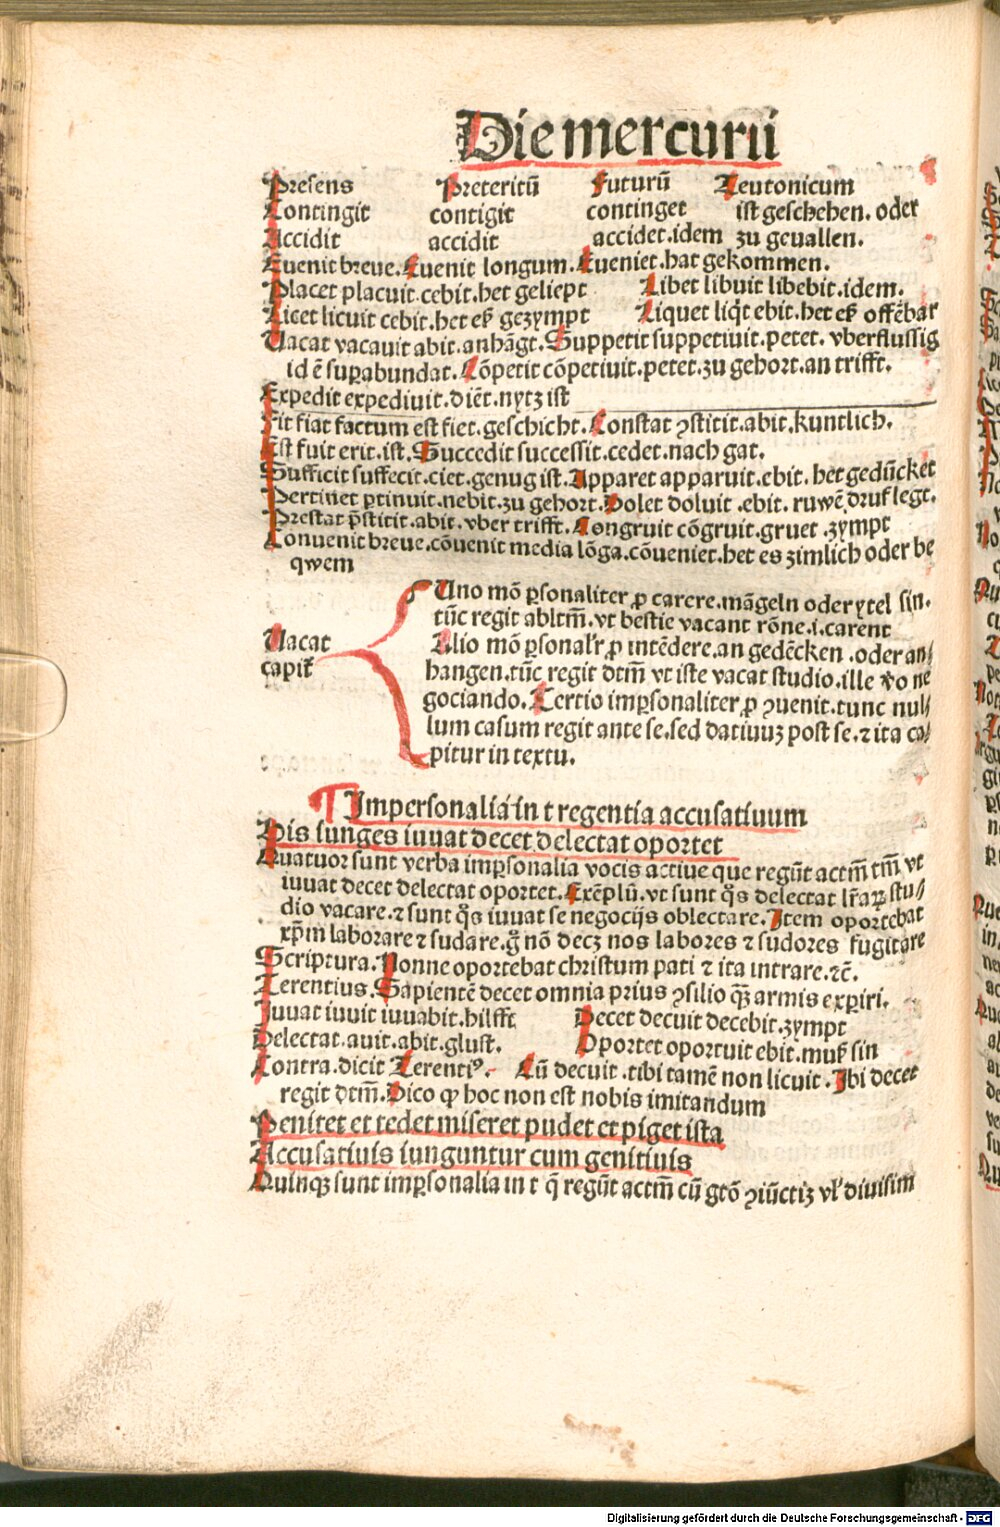 Die mercurii
Presens Preteritū Futurū Teutonicum
Contingit contigit continget ist geschehen. oder
Accidit accidit accidet.idem zu geuallen.
Euenit breue.Euenit longum.Eueniet.hat gekommen.
Placet placuit.cebit.het geliept Libet libuit libebit.idem.
Licet licuit cebit.het eß gezympt Liquet liqͥt ebit.het eß offēbar
Uacat vacauit abit.anhāgt.Suppetit suppetiuit.petet. vberflussig
id ē suꝑabundat.Cōpetit cōpetiuit.petet.zu gehort.an trifft.
Expedit expediuit.diēt.nytz ist
Fit fiat factum est fiet.geschicht.Constat ꝯstitit.abit.kuntlich.
Est fuit erit.ist.Succedit successit.cedet.nach gat.
Sufficit suffecit.ciet.genug ist.Apparet apparuit.ebit. het gedūcket
Pertinet ꝑtinuit.nebit.zu gehort.Dolet doluit .ebit. ruwē druf legt.
Prestat p̄stitit.abit.vber trifft.Congruit cōgruit.gruet .zympt
Conuenit breue.cōuenit media lōga.cōueniet.het es zimlich oder be
qwem
Uno mō ꝑsonaliter ꝓ carere.māgeln oder ytel sin.
tūc regit abltm̄.vt bestie vacant rōne.i.carent
Uacat
capit᷑
Alio mō ꝑsonal'r ꝓ intēdere.an gedēcken .oder an/
hangen.tūc regit dtm̄ vt iste vacat studio.ille v̊o ne
gociando.Tertio imꝑsonaliter ꝓ ꝯuenit.tunc nul/
lum casum regit ante se.sed datiuuꝫ post se.⁊ ita ca/
pitur in textu.
¶ Impersonalia in t regentia accusatiuum
His iunges iuuat decet delectat oportet
Quatuor sunt verba imꝑsonalia vocis actiue que regūt actm̄ tm̄ vt
iuuat decet delectat oportet.Exēplū.vt sunt q̄s delectat lr̄aꝝ stu/
dio vacare.⁊ sunt q̄s iuuat se negocijs oblectare.Item oportebat
xp̄m laborare ⁊ sudare.g̊ nō decꝫ nos labores ⁊ sudores fugitare
Scriptura.Nonne oportebat christum pati ⁊ ita intrare.⁊c̄.
Terentius.Sapientē decet omnia prius ꝯsilio qꝫ̄ armis exꝑiri.
Iuuat iuuit iuuabit.hilfft Decet decuit decebit.zympt
Delectat.auit.abit.glust. Oportet oportuit ebit.muß sin
Contra.dicit Terentiꝰ. Cū decuit .tibi tamē non licuit.Ibi decet
regit dtm̄.Dico ꝙ hoc non est nobis imitandum
Penitet et tedet miseret pudet et piget ista
Accusatiuis iunguntur cum genitiuis
Quinqꝫ sunt imꝑsonalia in t q̄ regūt actm̄ cū gtō ꝯiūctiꝫ vl' diuisim
Digitalisierung gefördert durch die Deutsche Forschungsgemeinschaft - DFG